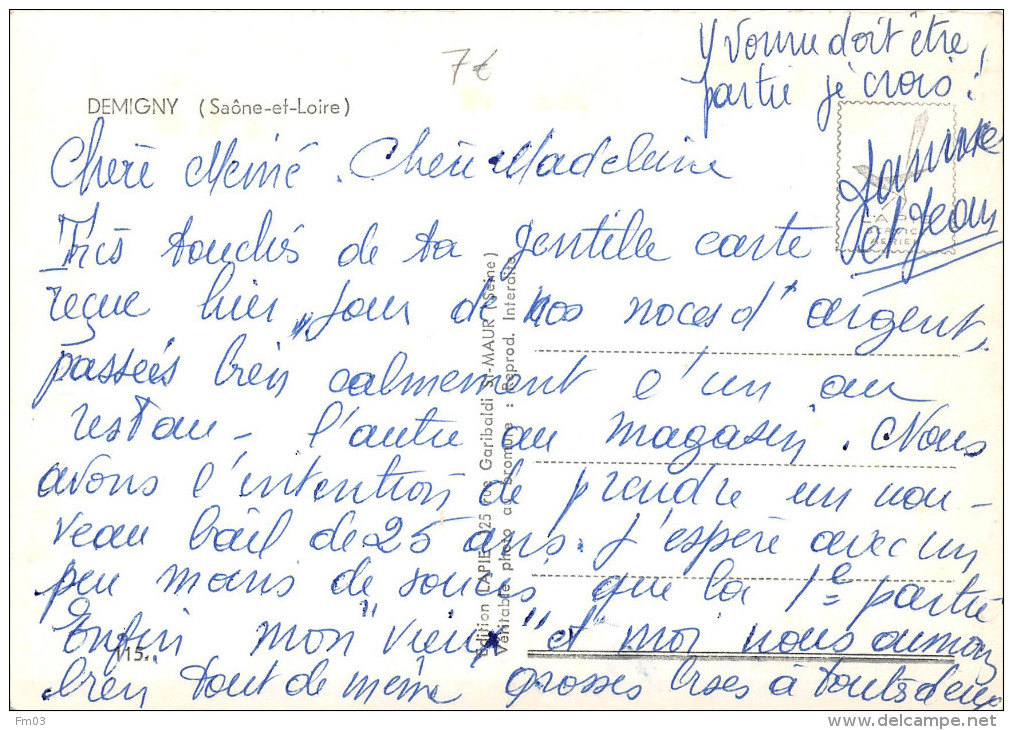 7€
DEMIGNY (Saône-et-Loire)
Chère Mémé. Chère Madeleine
Très touchés de ta gentille carte
reçue hier, jour de nos noces d'argent,
passées bien calmement l'un au
restau - l'autre au magasin. Nous
avons l'intention de prendre un nou-
veau bail de 25 ans. J'espère avec un
peu moins de soucis que la 1e partie
Enfin mon "vieux" et moi nous aimons
bien tout de même grosses bises à toutes deux
Yvonne doit être
partie je crois!
Jeannine
et Jean
LAPIE
SERVICE
AERIEN
Edition LAPIE 25 rue Garibaldi St-MAUR (Seine)
Véritable photo au bromure : Reprod. Interdite
115.
Fm03
delcampe.net